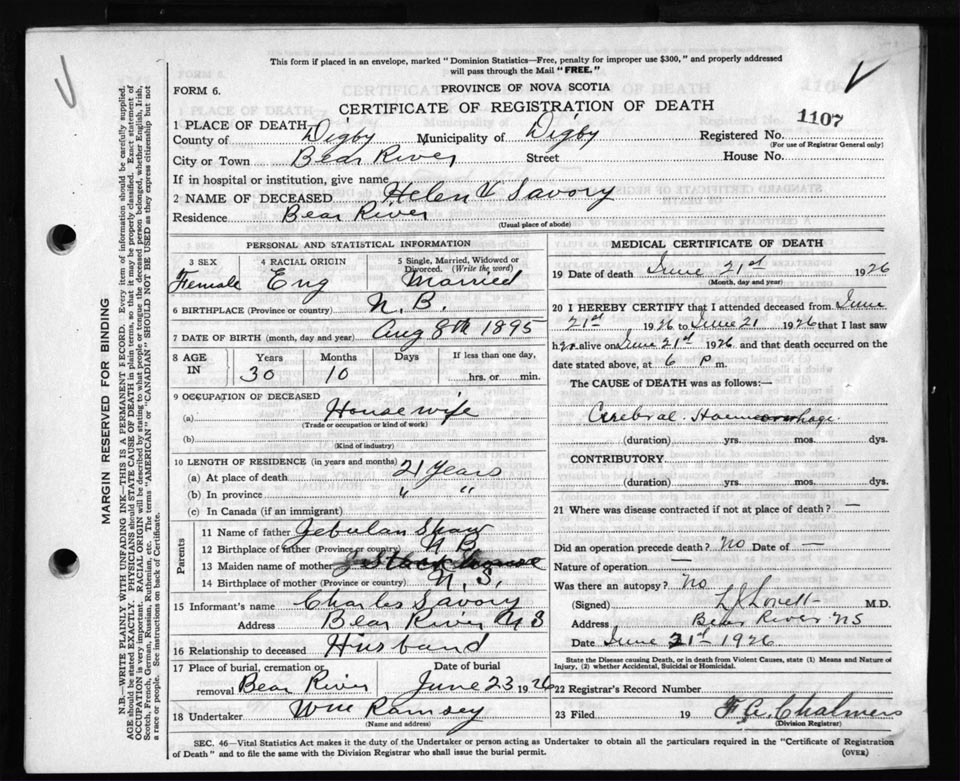 This form if placed in an envelope, marked "Dominion Statistics—Free, penalty for improper use $300," and properly addressed
will pass through the Mail "FREE."
FORM 6.
PROVINCE OF NOVA SCOTIA
CERTIFICATE OF REGISTRATION OF DEATH
1107
1 PLACE OF DEATH
County of Digby Municipality of Digby Registered No.
(For use of Registrar General only)
City or Town Bear River Street House No.
If in hospital or institution, give name
2 NAME OF DECEASED Helen V Savory
Residence Bear River
(Usual place of abode)
PERSONAL AND STATISTICAL INFORMATION
3 SEX 4 RACIAL ORIGIN 5 Single, Married, Widowed or
Divorced. (Write the word)
Female Eng Married
6 BIRTHPLACE (Province or country) N.B.
7 DATE OF BIRTH (month, day and year) Aug 8th 1895
8 AGE IN Years Months Days If less than one day,
30 10 hrs. or min.
9 OCCUPATION OF DECEASED
(a) House wife
(Trade or occupation or kind of work)
(b)
(Kind of industry)
10 LENGTH OF RESIDENCE (in years and months)
(a) At place of death 21 Years
(b) In province " "
(c) In Canada (if an immigrant)
Parents
11 Name of father Zebulan Shaw
12 Birthplace of father (Province or country) N B
13 Maiden name of mother
14 Birthplace of mother (Province or country) N.S.
15 Informant's name Charles Savory
Address Bear River N S
16 Relationship to deceased Husband
17 Place of burial, cremation or Date of burial
removal Bear River June 23 1926
18 Undertaker Wm Ramsey
(Name and address)
MEDICAL CERTIFICATE OF DEATH
19 Date of death June 21st 1926
(Month, day and year)
20 I HEREBY CERTIFY that I attended deceased from June
21st 1926 to June 21 1926 that I last saw
her alive on June 21st 1926 and that death occurred on
date stated above, at 6 P m.
The CAUSE of DEATH was as follows:—
Cerebral Haemorrhage
(duration) yrs. mos. dys.
CONTRIBUTORY
(duration) yrs. mos. dys.
21 Where was disease contracted if not at place of death? —
Did an operation precede death? no Date of —
Nature of operation —
Was there an autopsy? No
(Signed) L J Lovett M.D.
Address Bear River NS
Date June 21st 1926
State the Disease causing Death, or in death from Violent Causes, state (1) Means and Nature of
Injury, (2) whether Accidental, Suicidal or Homicidal.
22 Registrar's Record Number
23 Filed 19 Chalmers
(Division Registrar)
SEC. 46—Vital Statistics Act makes it the duty of the Undertaker or person acting as Undertaker to obtain all the particulars required in the "Certificate of Registration
of Death" and to file the same with the Division Registrar who shall issue the burial permit.
(OVER)
MARGIN RESERVED FOR BINDING
N.B.—WRITE PLAINLY WITH UNFADING INK—THIS IS A PERMANENT RECORD. Every item of information should be carefully supplied.
AGE should be stated EXACTLY. PHYSICIANS should STATE CAUSE OF DEATH in plain terms, so that it may be properly classified. Exact statement of
OCCUPATION is very important. RACIAL ORIGIN will be described by stating to what people or tongue the deceased person belonged, whether English, Irish,
Scotch, French, German, Russian, Ruthenian, etc. The terms "AMERICAN" or "CANADIAN" SHOULD NOT BE USED as they express citizenship but not
a race or people. See instructions on back of Certificate.